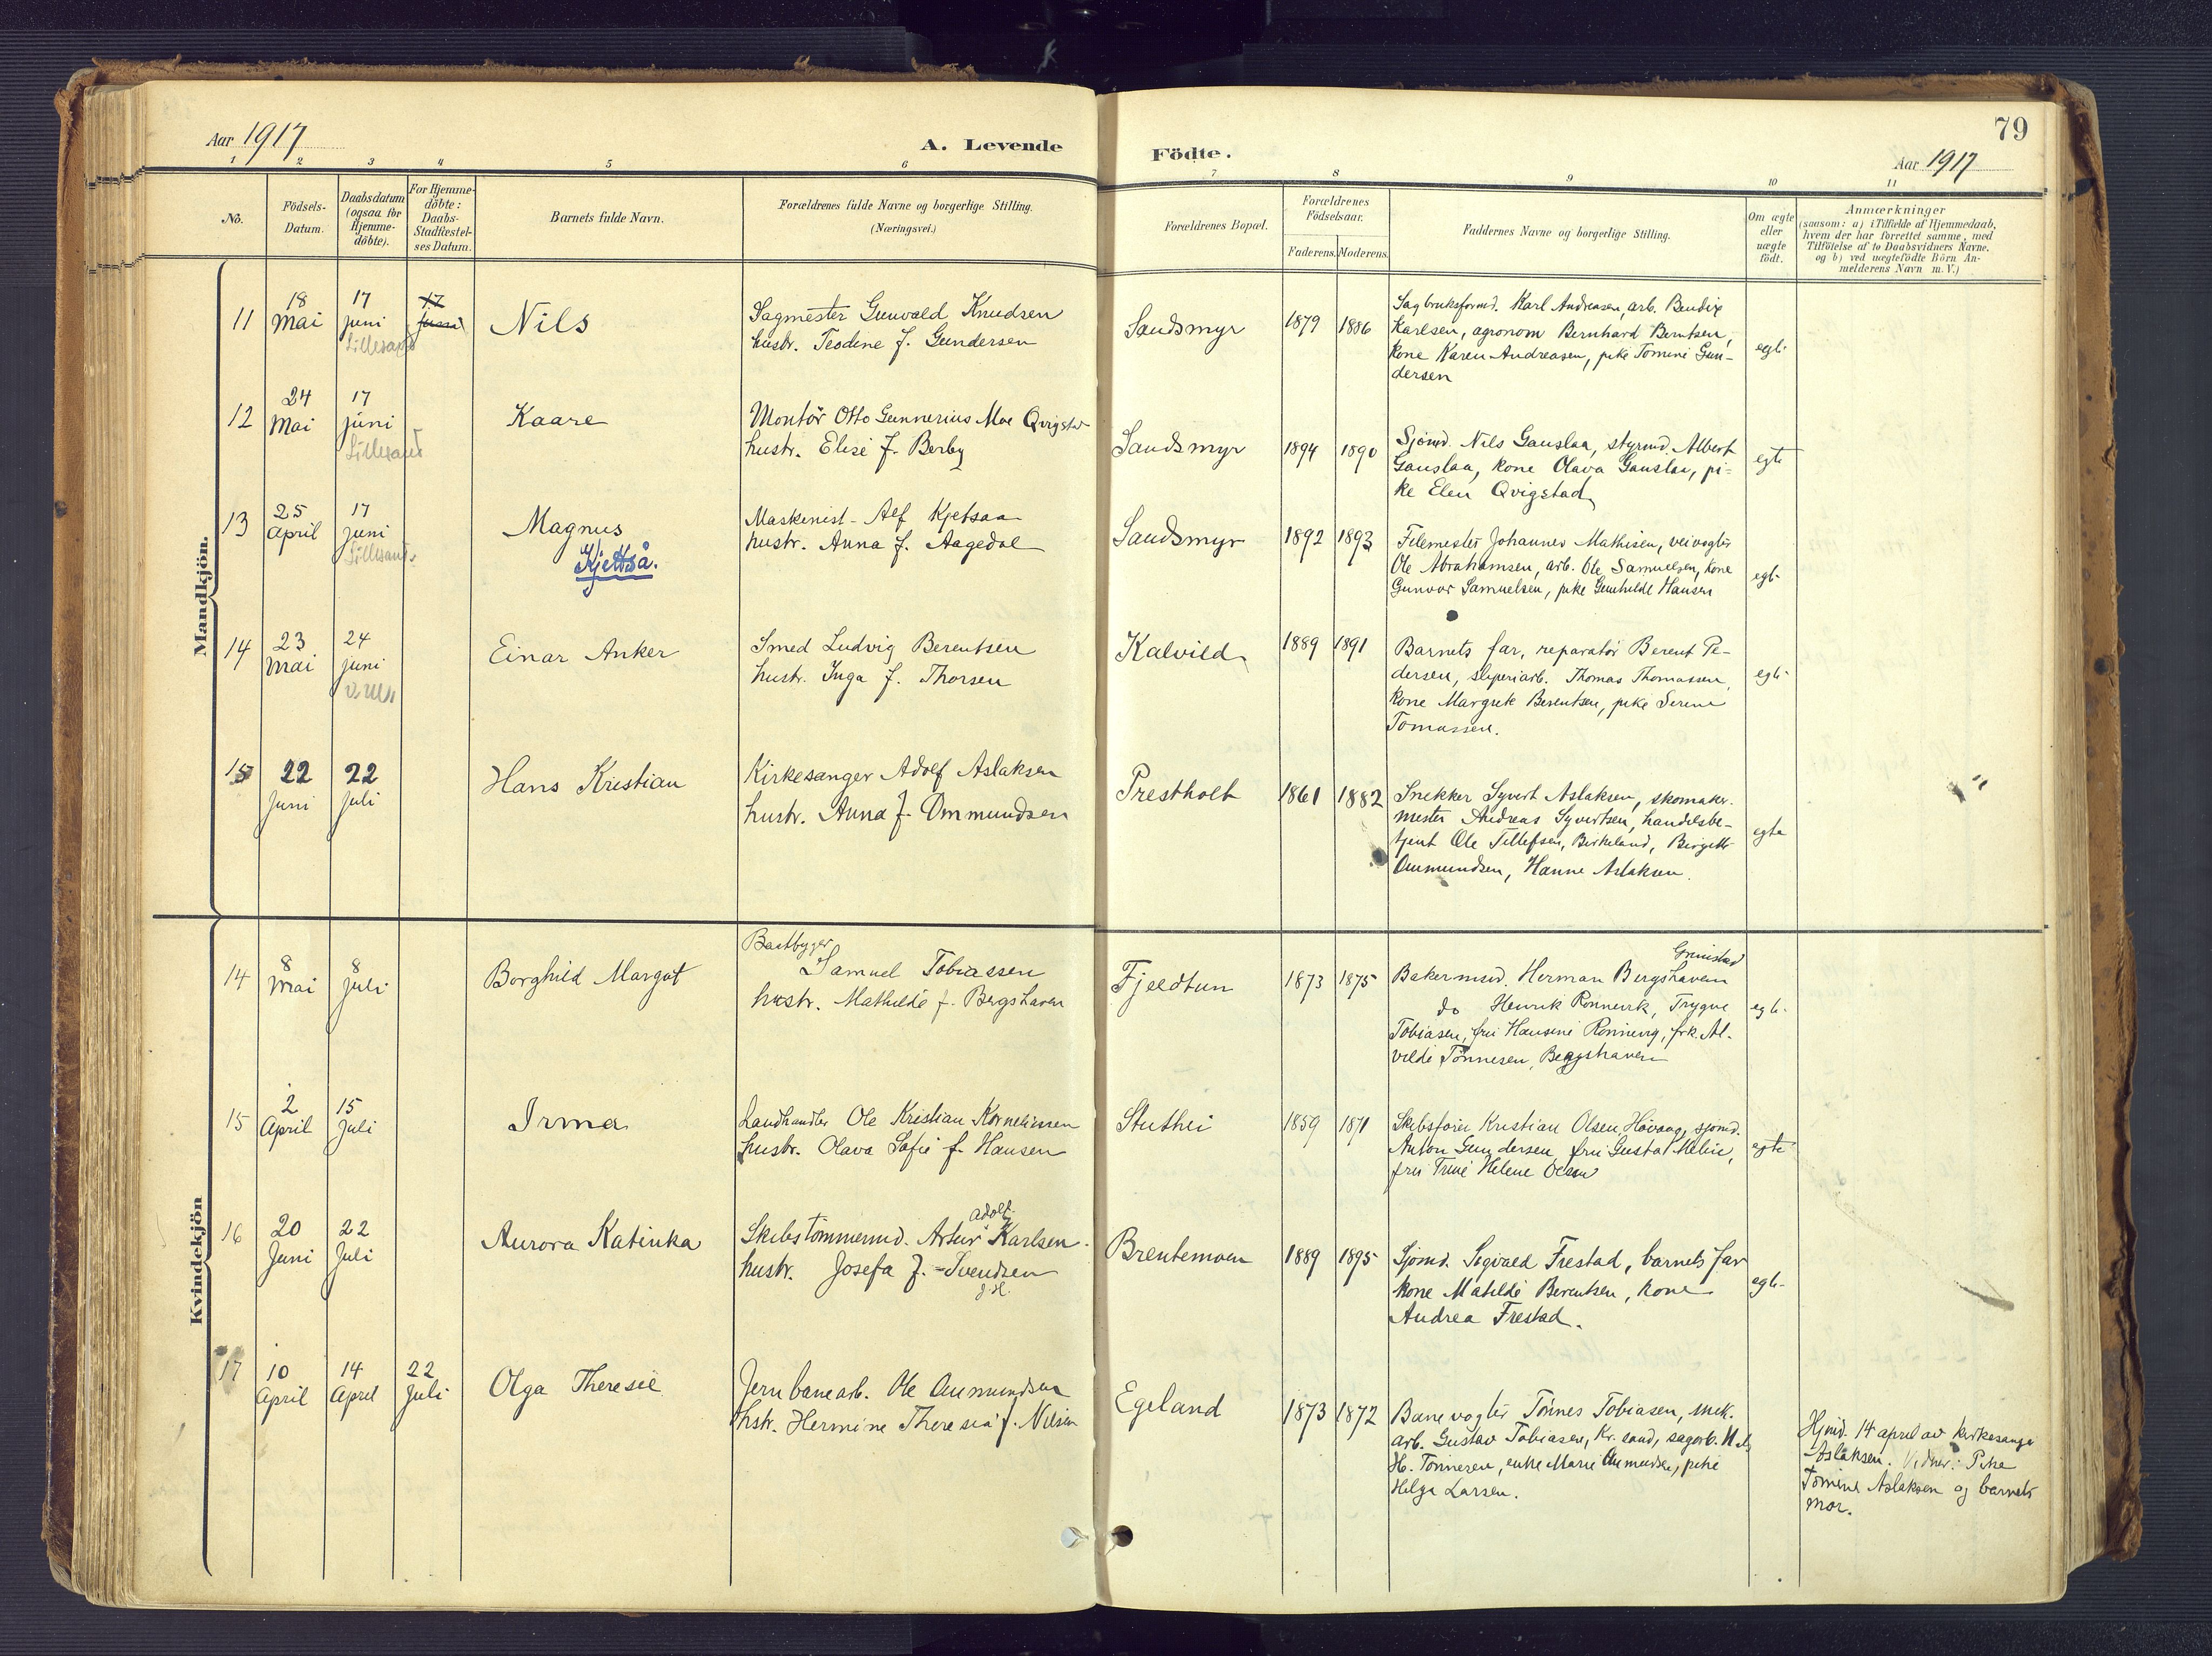 Aar 1917
A. Levende
Födte.
79
Aar 1917
1 2 3 4 5 6 7 8 9 10 11
No.
Födsels-
Datum.
Daabsdatum
(ogsaa for
Hjemme-
döbte).
For Hjemme-
döbte:
Daabs-
Stadfæstel-
ses Datum.
Barnets fulde Navn.
Forældrenes fulde Navne og borgerlige Stilling.
(Næringsvei.)
Forældrenes Bopæl.
Forældrenes
Födselsaar.
Faderens. Moderens.
Faddernes Navne og borgerlige Stilling.
Om ægte
eller
uægte
födt.
Anmærkninger
(saasom: a) i Tilfælde af Hjemmedaab,
hvem der har forrettet samme, med
Tilföielse af to Daabsvidners Navne,
og b) ved uægtefödte Börn An-
melderens Navn m. V.)
Mandkjön.
11
18
Mai
17
juni
Lillesand
17
juni
Nils
Sagmester Gunvald Knudsen
hustr. Teodine f. Gundersen
Sandsmyr
1879
1886
Sagbruksformd. Karl Andreasen, arb. Bendix
Karlsen, agronom Bernhard Berntsen,
kone Karen Andreasen, pike Tomine Gun-
dersen
egt.
12
24
Mai
17
juni
Lillesand
Kaare
Montör Otto Gunnerius Moe Qvigstad
hustr. Elise f. Berby
Sandsmyr
1894
1890
Sjömd. Nils Gauslaa, styrmd. Albert
Gauslaa, kone Olava Gauslaa, pi-
ke Elen Qvigstad
egte
13
25
April
17
juni
Lillesand
Magnus
Kjettså.
Maskinist Alf Kjetsaa
hustr. Anna f. Aagedal
Sandsmyr
1892
1893
Filemester Johannes Mathisen, veivogter
Ole Abrahamsen, arb. Ole Samuelsen, kone
Gunvor Samuelsen, pike Gunhilde Hansen
egt.
14
23
Mai
24
juni
Einar Anker
Smed Ludvig Berentsen
hustr. Inga f. Thorsen
Kalvild
1889
1891
Barnets far, reparatör Berent Pe-
dersen, sliperiarb. Thomas Thomassen,
kone Margrete Berentsen, pike Serene
Tomassen.
egt.
15
22
Juni
22
juli
Hans Kristian
Kirkesanger Adolf Aslaksen
hustr. Anna f. Ommundsen
Prestholt
1861
1882
Snekker Syvert Aslaksen, skomaker-
mester Andreas Syvertsen, handelsbe-
tjent Ole Tellefsen, Birkeland, Birgitte
Ommundsen, Hanne Aslaksen.
egte
Kvindekjön
14
8
Mai
8
juli
Borghild Margot
Baatbygger
Samuel Tobiassen
hustr. Mathilde f. Bergshaven
Fjeldtun
1873
1875
Grimstad
Bakermsd. Herman Bergshaven
do Henrik Ronnevik, Trygve
Tobiasen, fru Hansine Ronnevig, frk. Al-
vilde Tönnesen, Bergshaven
egt.
15
2
April
15
Juli
Irma
Landhandler Ole Kristian Korneliussen
hustr. Olava Sofie f. Hansen
Stuthei
1859
1871
Skibsförer Kristian Olsen, Hövaag, sjömd.
Anton Gundersen, fru Gusta Melüe,
fru Trine Helene Olsen
egte
16
20
Juni
22
Juli
Aurora Katinka
Adolf
Skibstömmermd. Artur Karlsen
hustr. Josefa f. Svendsen
Brentemoen
1889
1895
Sjömd. Sigvald Frestad, barnets far
kone Matilde Berentsen, kone
Andrea Frestad.
egt.
17
10
April
14
April
22
Juli
Olga Theresie
Jernbanearb. Ole Ommundsen
hstr. Hermine Theresia f. Nilsen
Egeland
1873
1872
Banevogter Tönnes Tobiasen, mek.
arb. Gustav Tobiasen, Kr.sand, sagarb. Nils
H. Tönnesen, enke Marie Ommundsen, pike
Helga Larsen.
Hjmd. 14 april av kirkesanger
Aslaksen. Vidner: Pike
Tomine Aslaksen og barnets
mor.